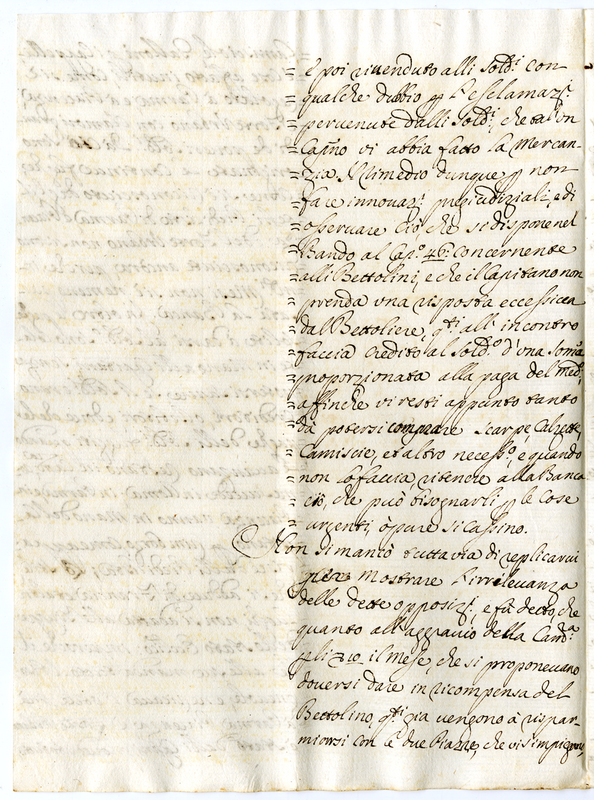 = e poi riuenduto alli Sold.i con
= qualche dubbio p le esclamaz.i
= peruenute dalli Sold.i, che tal'un
= Cap.no vi abbia fatto la Mercan-
= zia. Rimedio dunque p non
= fare innouaz.i pregiudiziali, e di
= osseruare ciò, che si dispone nel
= Bando al Cap.o 46: concernente
= alli Bettolini, e che il Capitano non
= prenda una risposta eccessiua
= dal Bettoliere, q.ti all'incontro
= faccia credito al Sold.o d'una Soma
= proporzionata alla paga del med.o
= affinche vi resti appunto tanto
= da potersi comprare Scarpe, Calzette,
= Camiscie, et altro necess.o, e quando
= non lo faccia, ritenere alla Banca
= ciò, che può bisognarli p le cose
= urgenti, o pure si cassino.
Non si mancò tutta via di replicarui
mostrare l'irrileuanza
delle dette opposiz.i, e fù detto, che
quanto all'aggrauio della Cam.a
p li 20 il mese, che si proponeuano
douersi dare in ricompensa del
Bettolino, q.ti già vengono à rispar-
miarsi con le due Piazze, che vi s'impiegano,